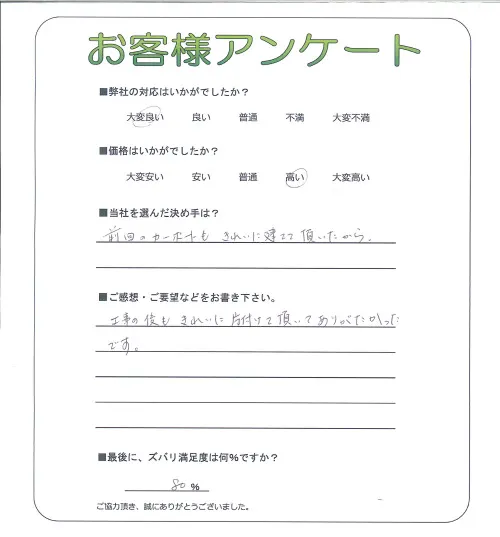 お客様アンケート
■弊社の対応はいかがでしたか？
大変良い 良い 普通 不満 大変不満
■価格はいかがでしたか？
大変安い 安い 普通 高い 大変高い
■当社を選んだ決め手は？
前回のカーポートも きれいに建てて頂いたから。
■ご感想・ご要望などをお書き下さい。
工事の後も きれいに 片付けて頂いてありがたかった
です。
■最後に、ズバリ満足度は何%ですか？
80 %
ご協力頂き、誠にありがとうございました。